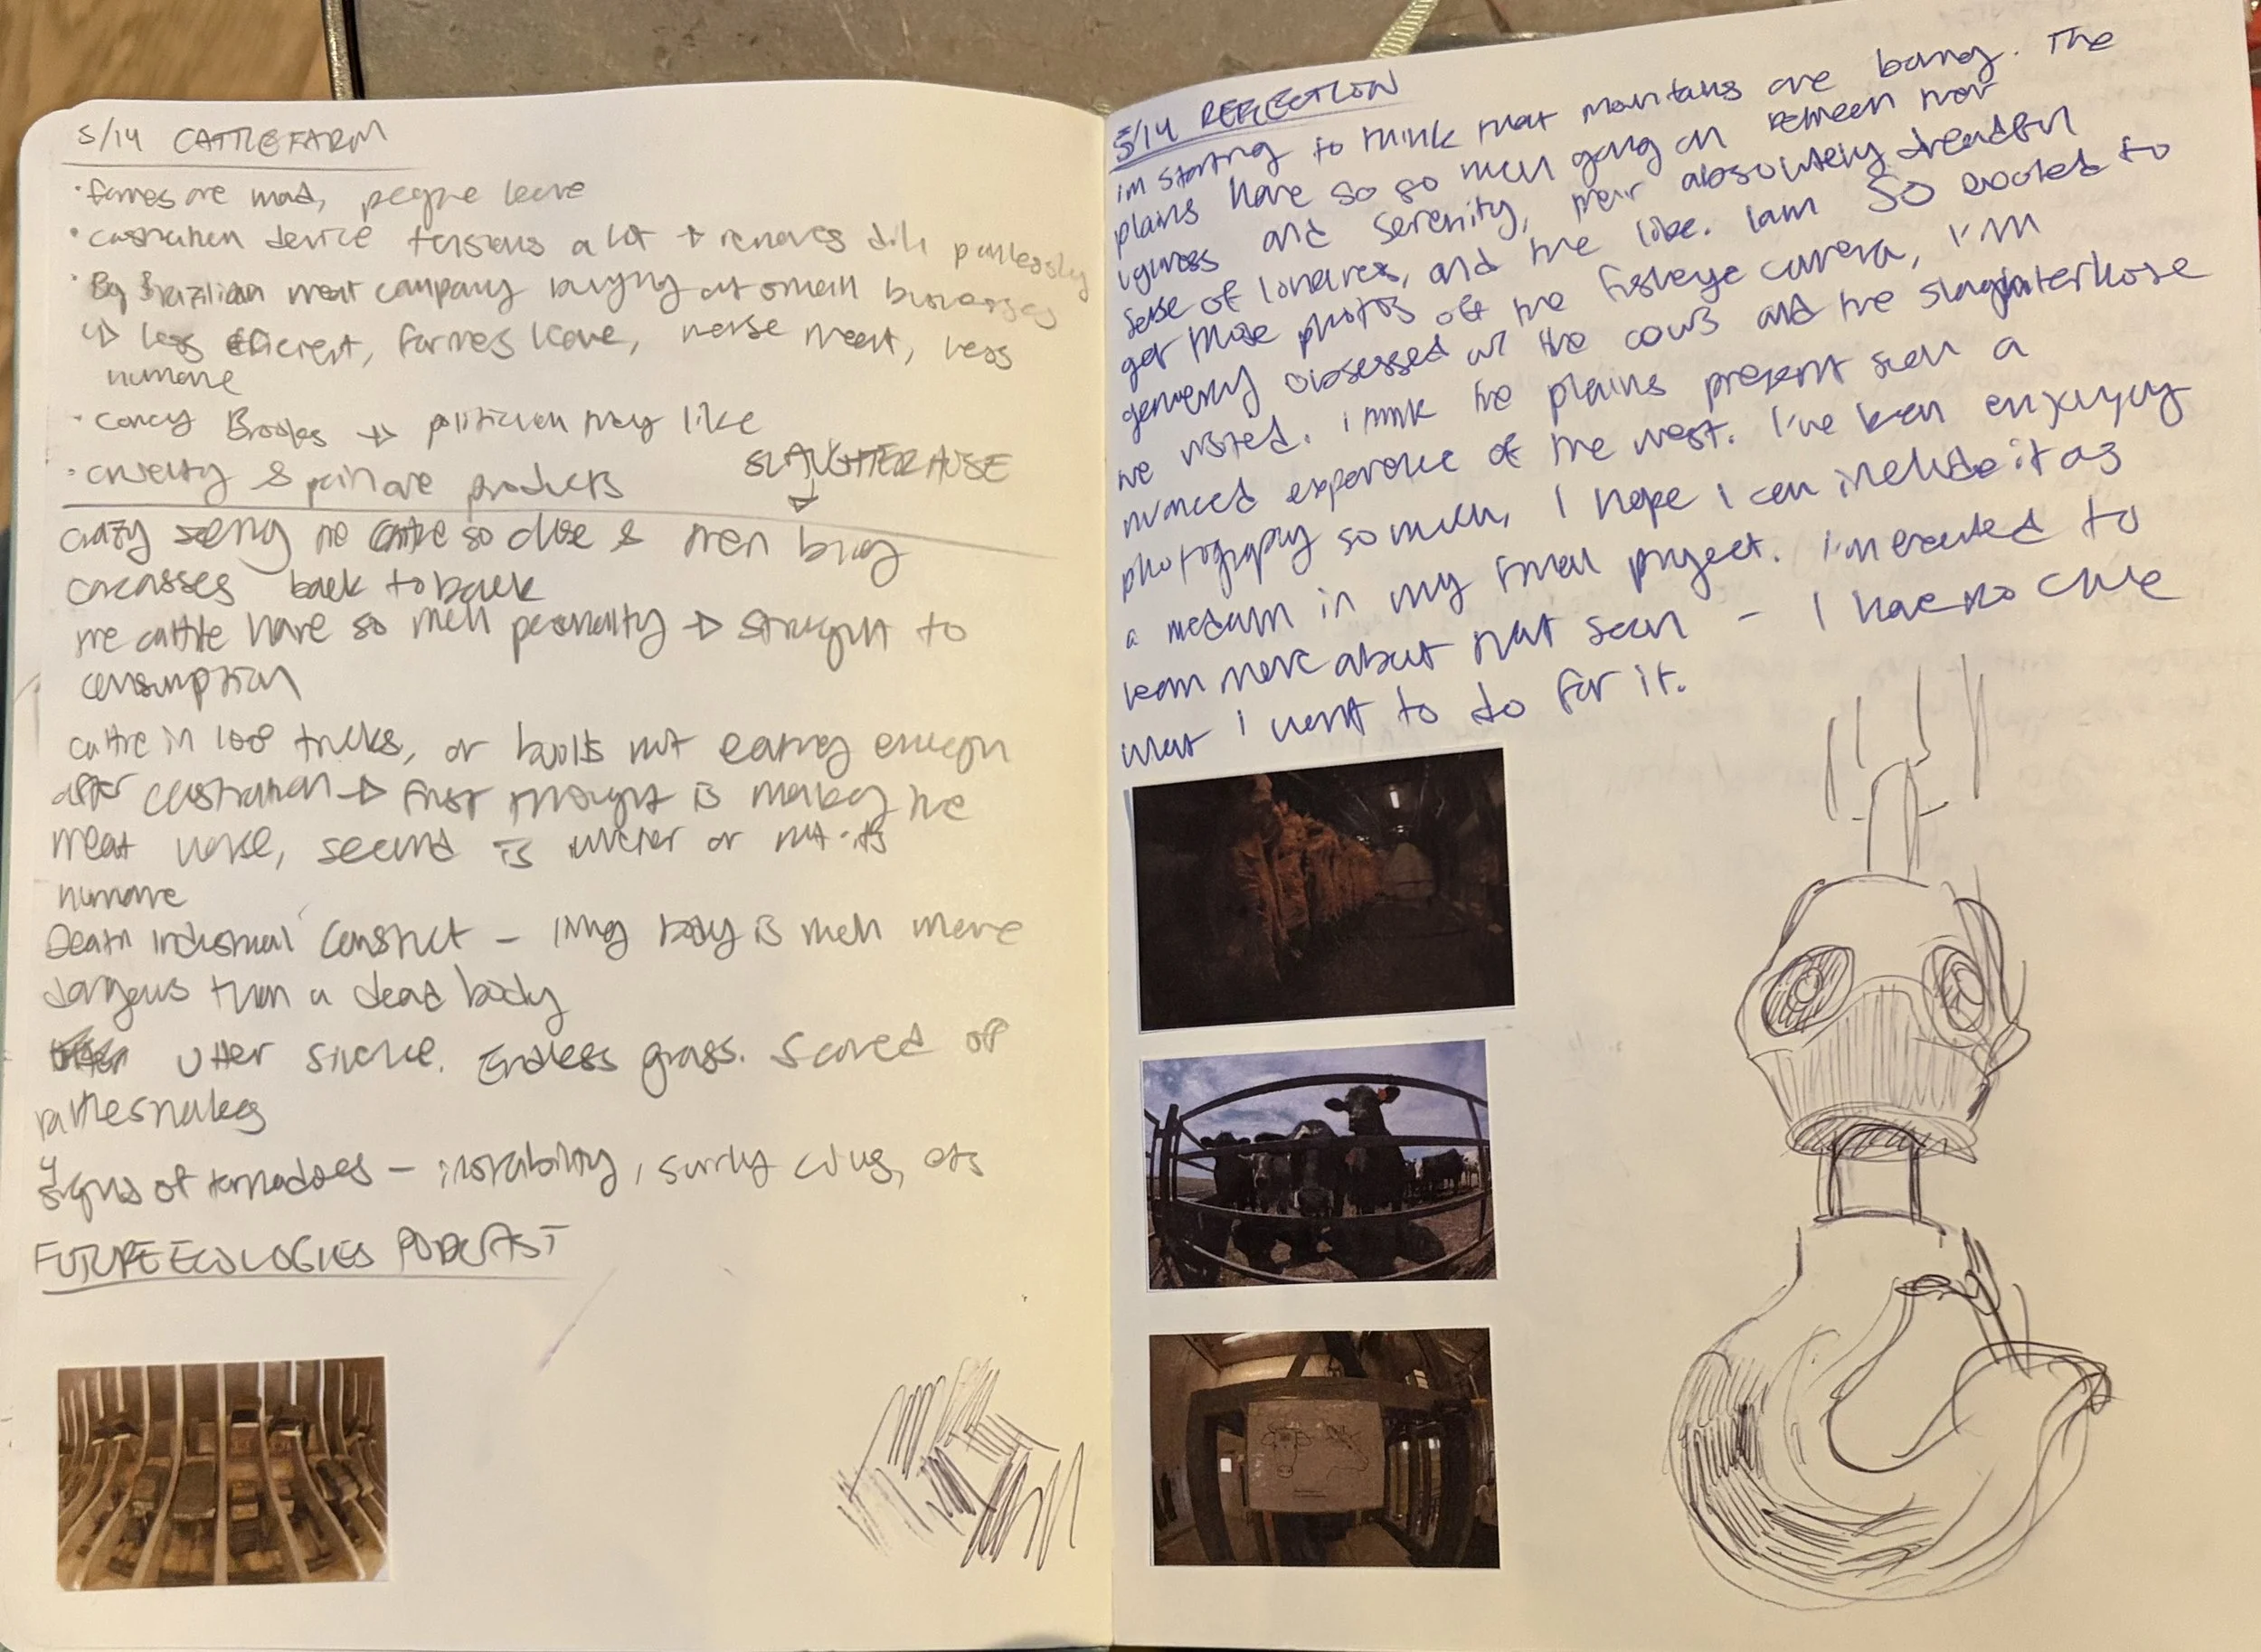 5/14 CATTLE FARM
· farmers are mad, people leave
· castration device tensions a lot → removes painlessly
· Big Brazilian meat company buying out small businesses
↳ less efficient, farmers leave, worse meat, less
humane
· Brooks → politician may like
· cruelty & pain are products
SLAUGHTERHOUSE
crazy seeing the cattle so close & then being
carcasses back to back
the cattle have so much personality → straight to
consumption
cattle in trucks, or bulls not eating enough
after castration → first thought is making the
meat worse, second is whether or not its
humane
Death industrial construct – living body is much more
dangerous than a dead body
utter silence. Endless grass. Scared of
rattlesnakes
signs of tornadoes – instability, swirly
FUTURE ECOLOGIES PODCAST
5/14 REFLECTION
im starting to think that mountains are boring. The
plains have so so much going on between their
and serenity, their absolutely dreadful
sense of loneliness, and the like. I am so excited to
get those photos off the fisheye camera, I'm
genuinely obsessed w/ the cows and the slaughterhouse
we visited. I think the plains present such a
nuanced experience of the west. I've been enjoying
photography so much, I hope I can include it as
a medium in my final project. I'm excited to
learn more about that soon – I have no clue
what i want to do for it.